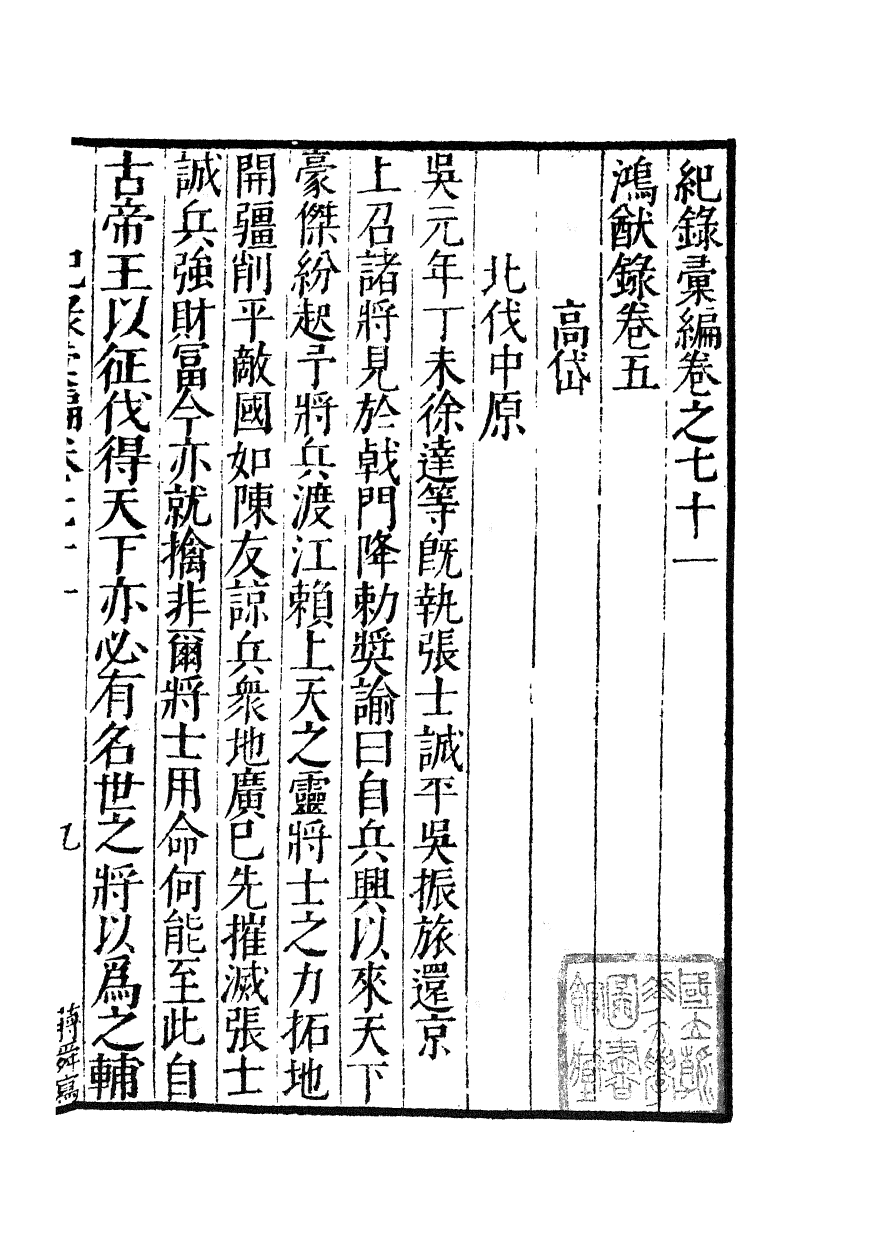 紀錄彙編卷之七十一
鴻猷錄卷五
高岱
北伐中原
吳元年丁未徐達等旣執張士誠平吳振旅還京
上召諸將見於戟門降勅奬諭曰自兵興以來天下
豪傑紛起予將兵渡江賴上天之靈將士之力拓地
開疆削平敵國如陳友諒兵衆地廣已先摧滅張士
誠兵強財富今亦就擒非爾將士用命何能至此自
古帝王以征伐得天下亦必有名世之將以爲之輔
紀錄彙編卷七十一
蔣舜寫